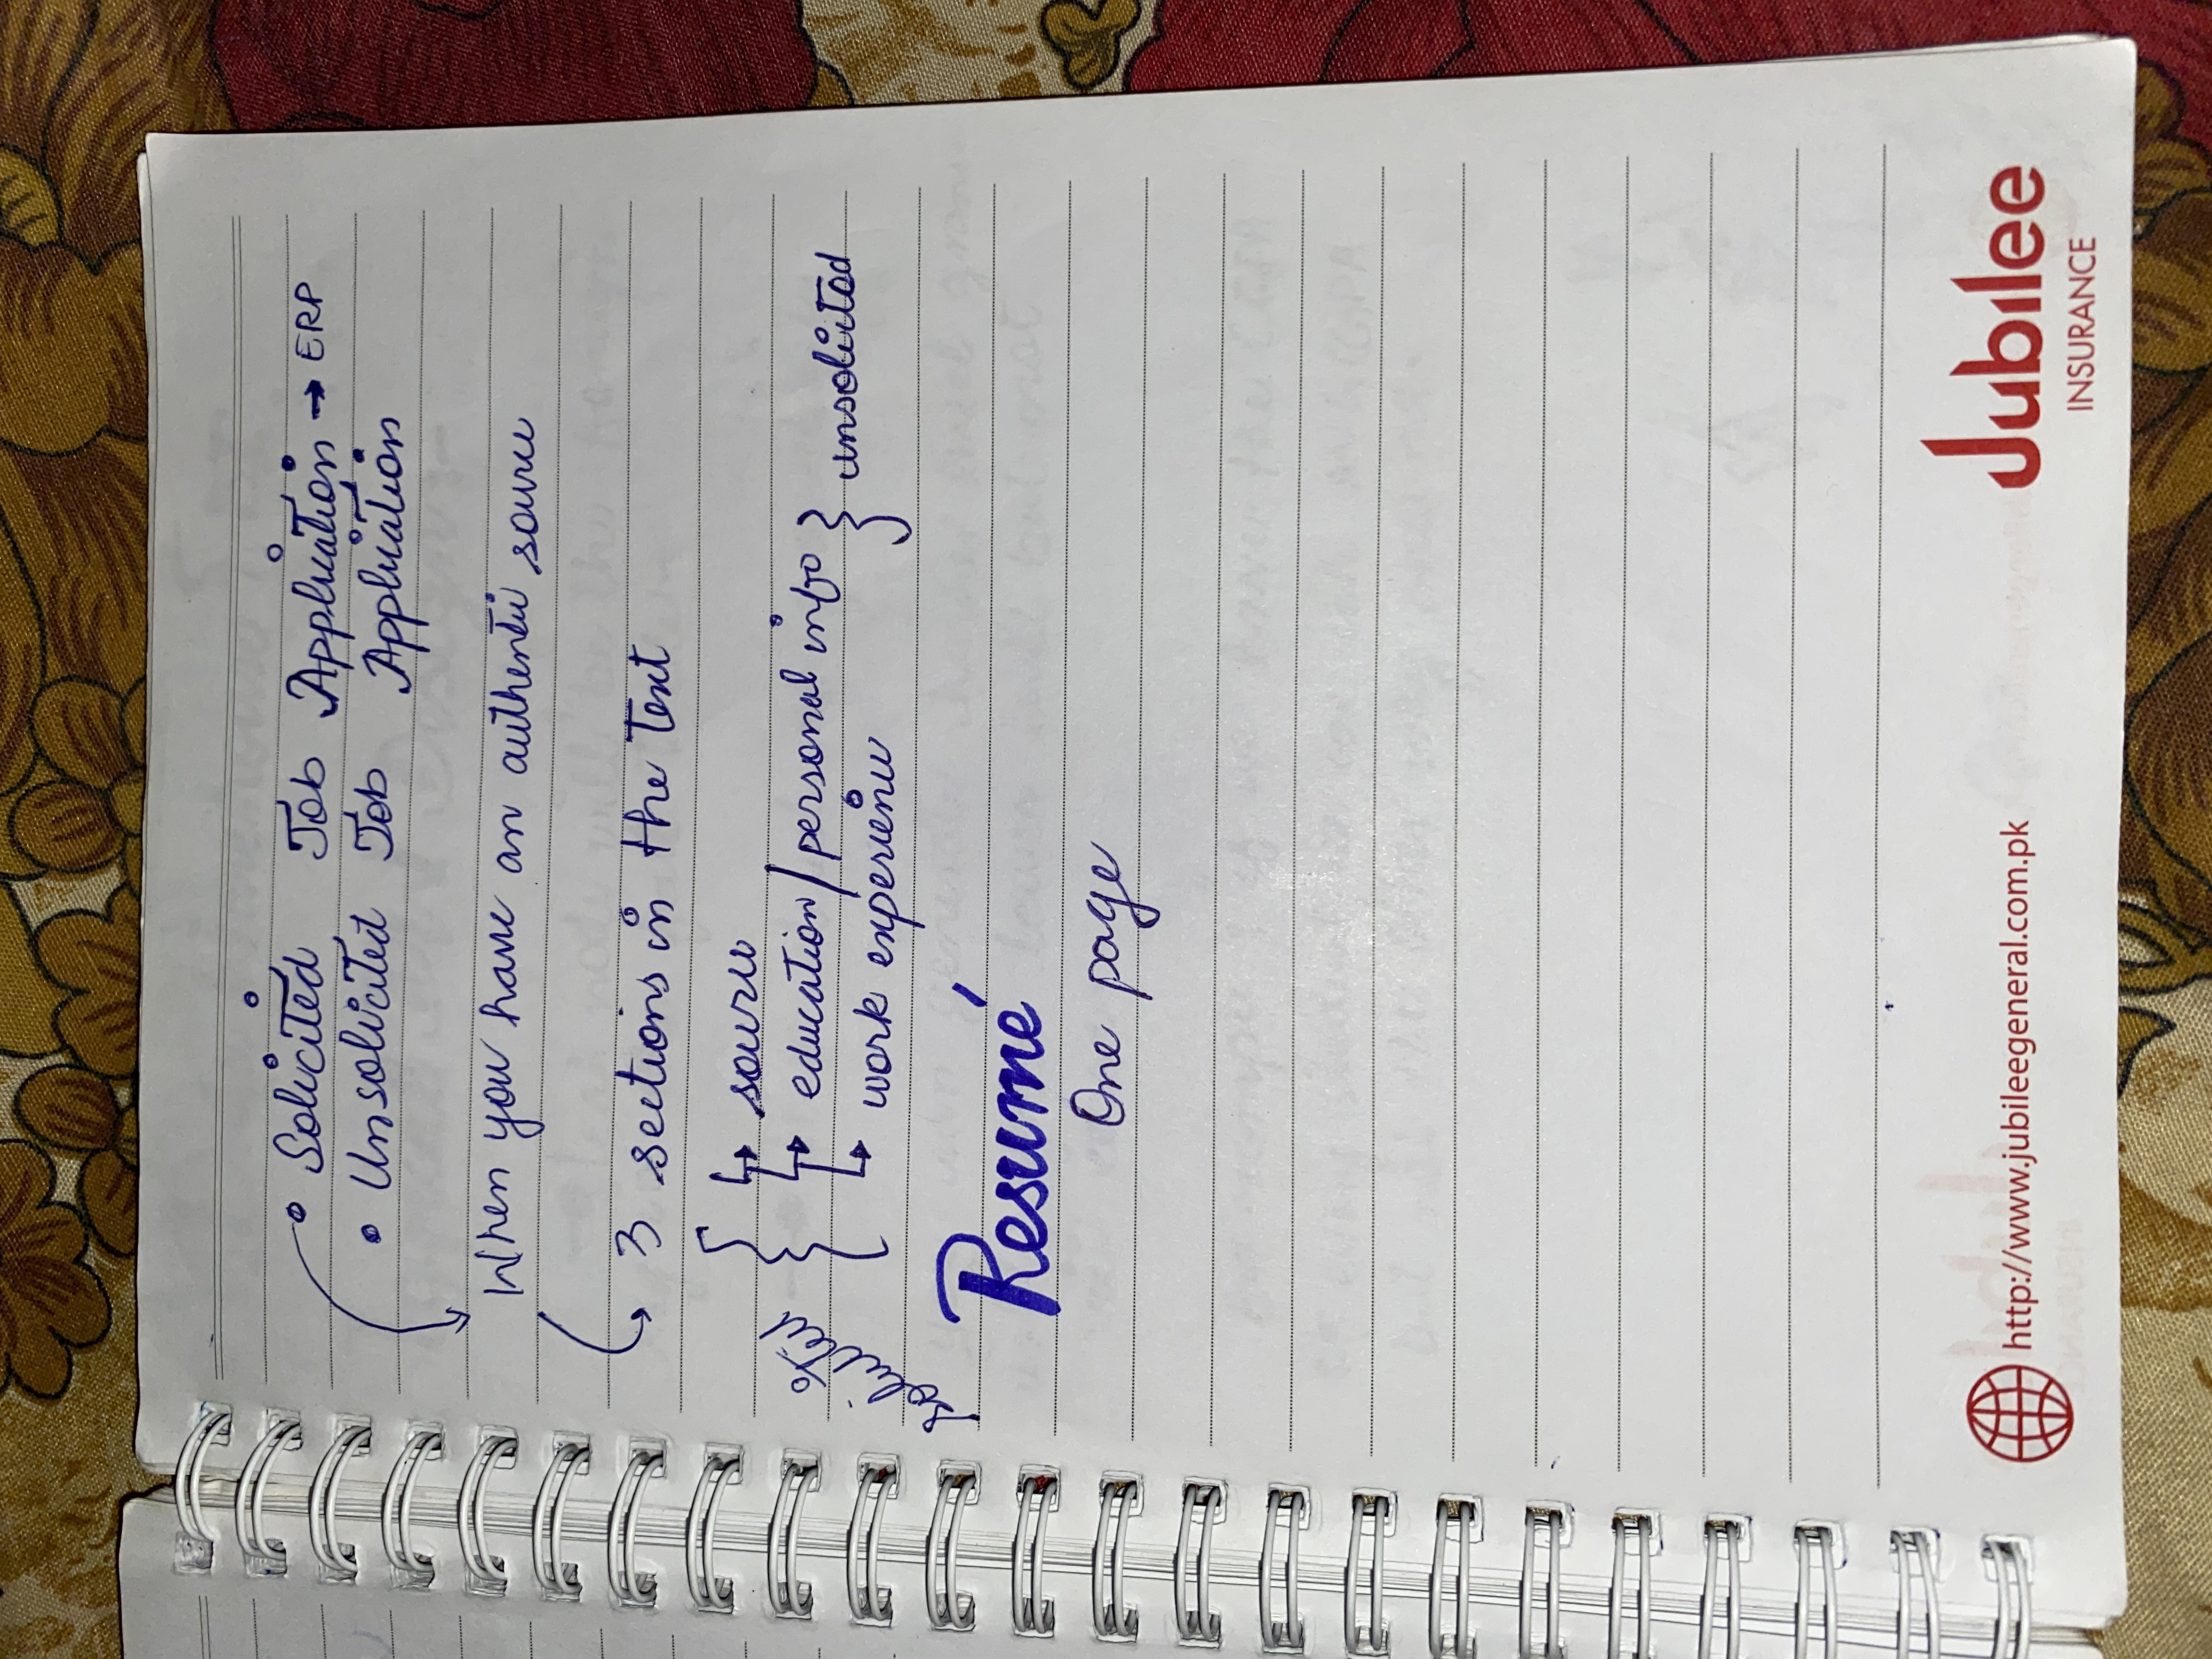 • Solicited Job Application → ERP
• Unsolicited Job Application
When you have an authentic source
3 sections in the text
solicited { ↳ source
↳ education / personal info } unsolicited
↳ work experience
Resumé
One page
http://www.jubileegeneral.com.pk
Jubilee
INSURANCE